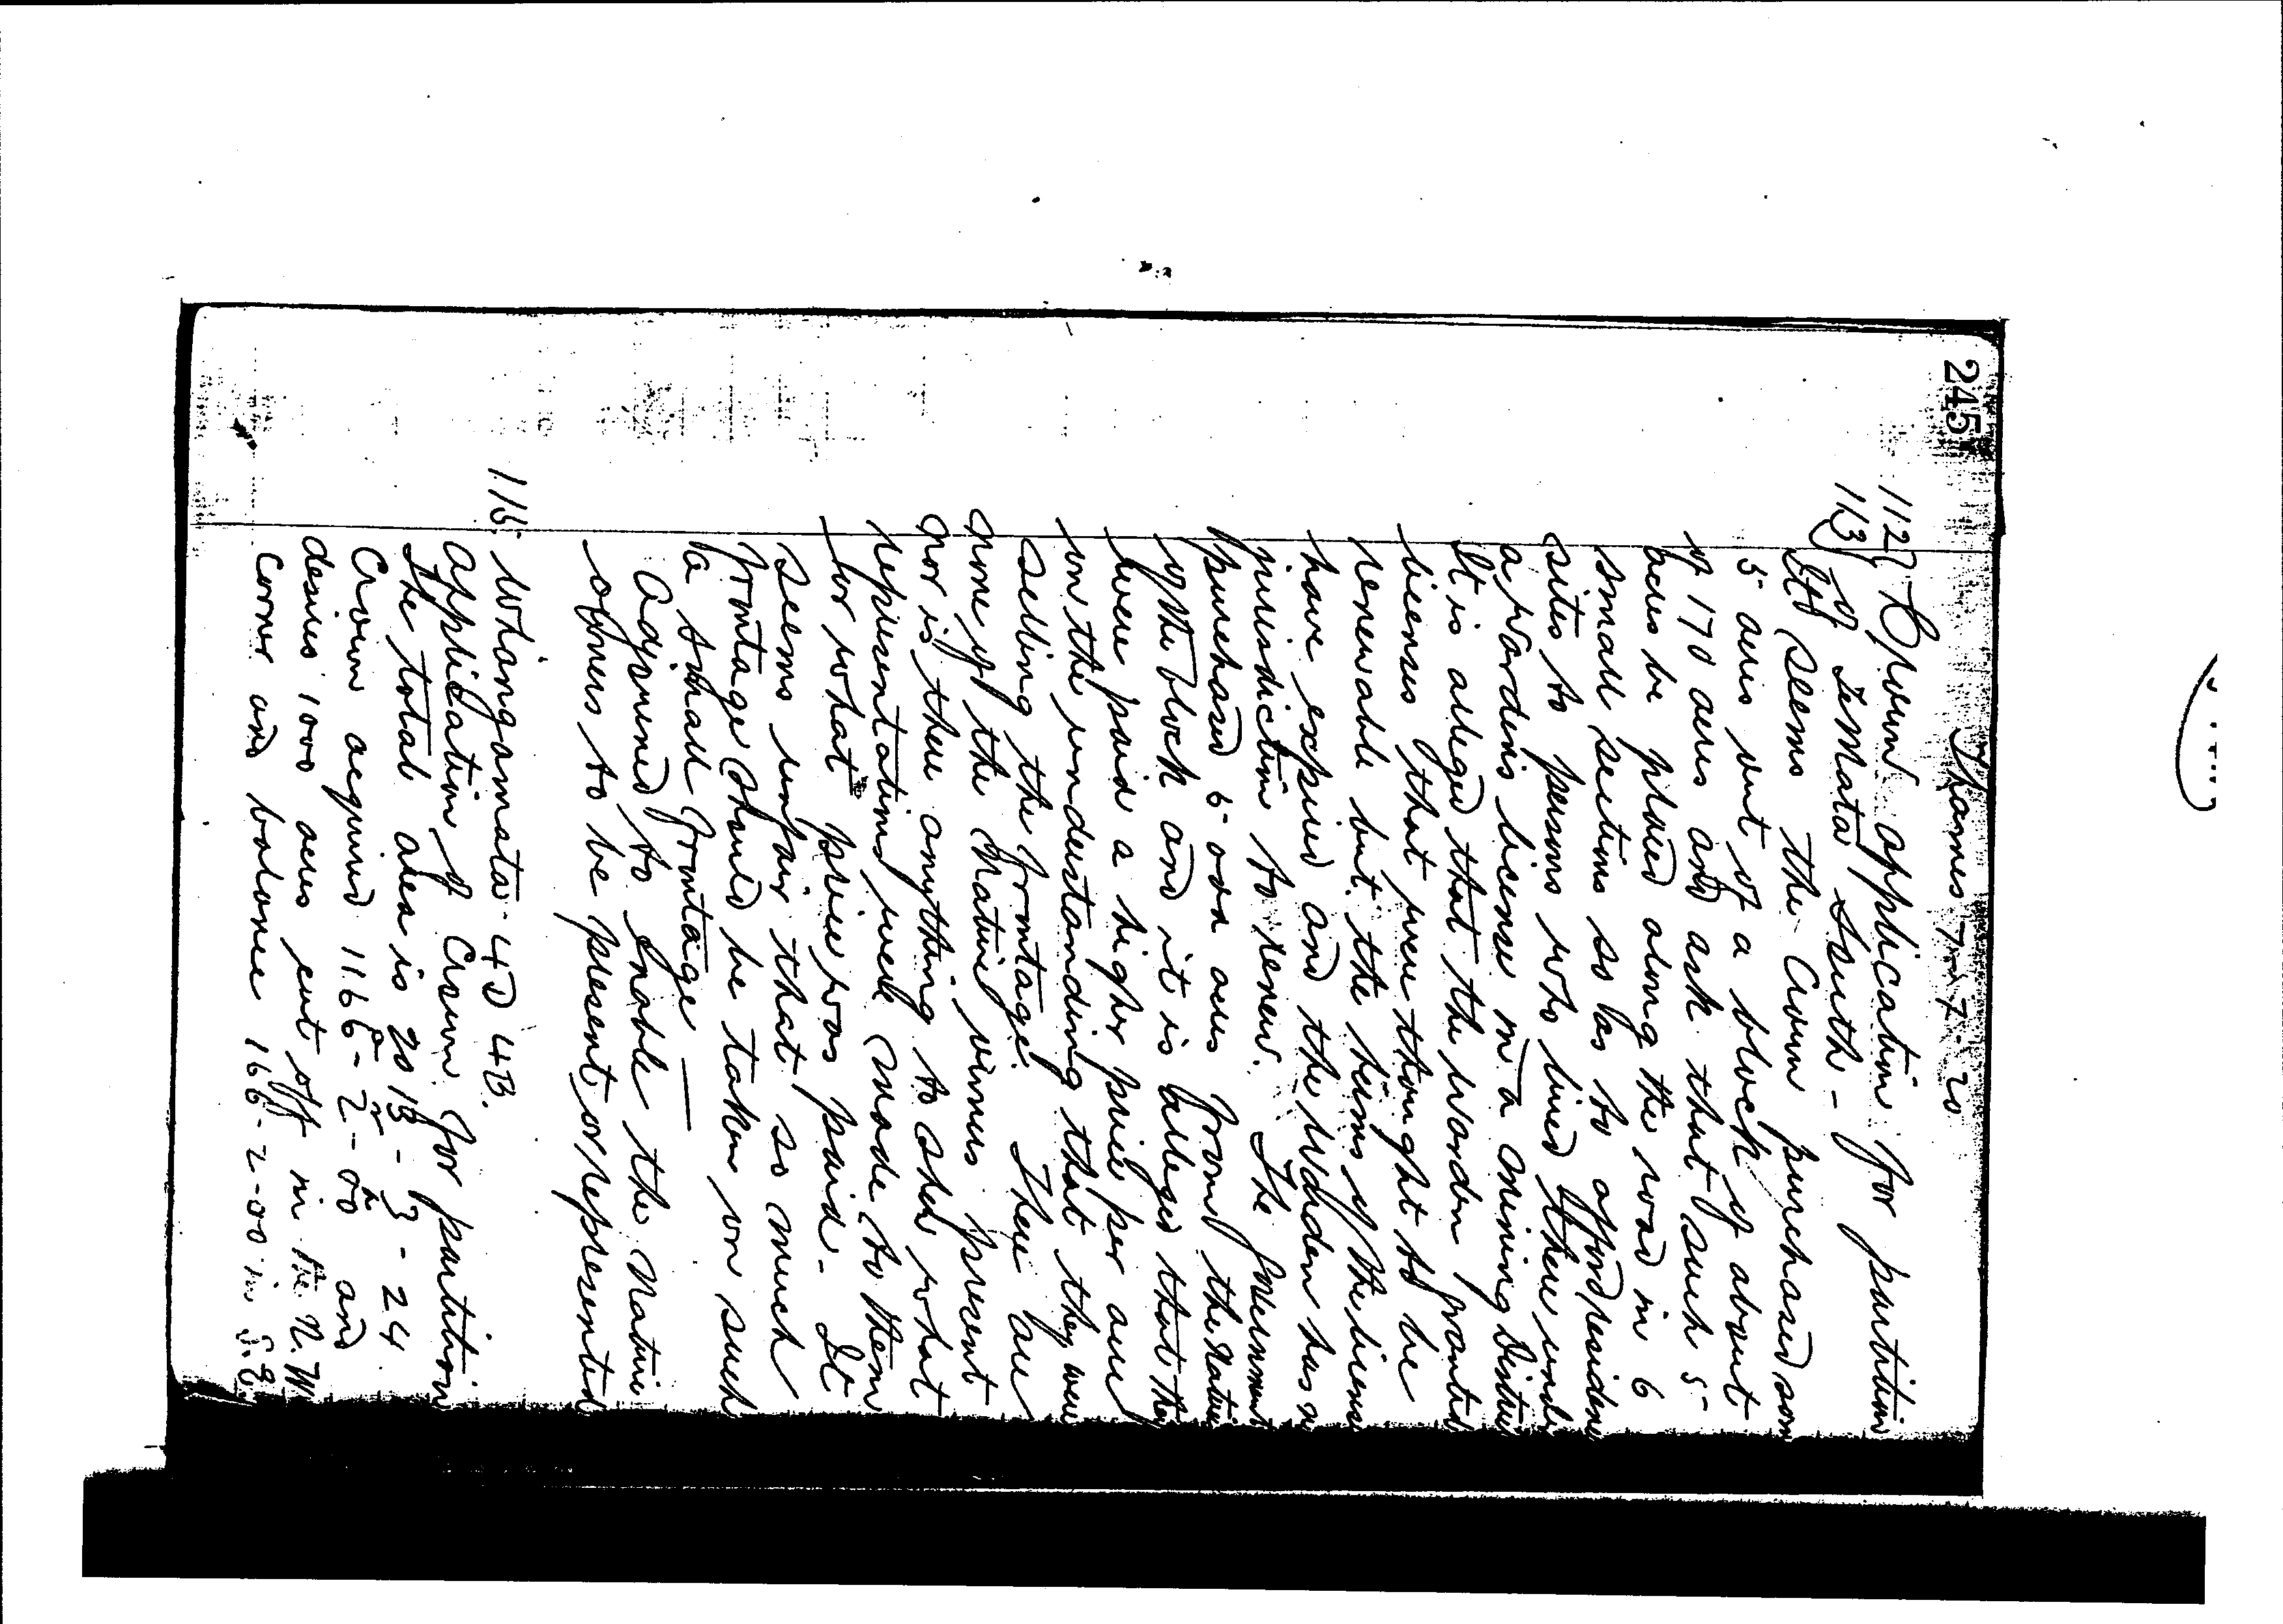 245
Thames 7-7-20
112} Crown application for partition
113} of Temata South -
It seems the Crown purchased som
5 acres out of a block of about
of 170 acres and ask that such 5
acres be placed along the road in 6
small sections so as to afford residence
sites to persons who lived there under
a wardens license in a mining Distric
It is alleged that the warden granted
licenses that were thought to be
renewable but the terms of the license
have expired and the Warden has no
jurisdiction to renew. The Government
purchased 5 odd acres from the Native
of the block and it is alleged that they
were paid a higher price per acre
on the understanding that they were
selling the frontage. There are
none of the Native owners present
nor is there anything to shew what
representations were made to them
or what price was paid. It
seems unfair that so much
frontage should be taken on such
a small frontage —
Adjourned to enable the Native
owners to be present or represented
115. Whangamata 4D 4B.
Application of Crown for partition
The total area is 2013 - 3 - 24
Crown acquired 1166 - 2 - 00 and
desires 1000 acres cut off in the N.W
corner and balance 166-2-00 in S.E.